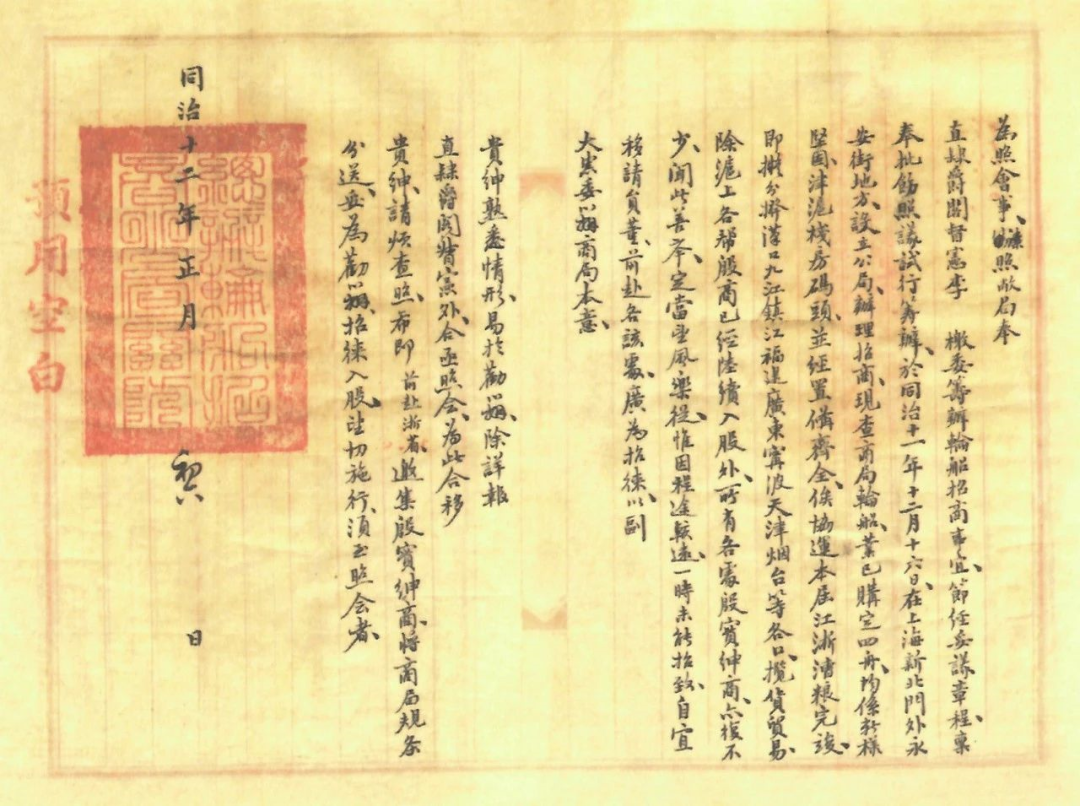 為照會事、照得敝局奉
直隸爵閣督憲李　檄委籌辦輪船招商事宜、節經妥議章程、稟
奉批飭照議試行、籌辦、於同治十一年十二月十六日、在上海新北門外永
安街地方、設立公局、辦理招商、現查商局輪船、業已購定四舟、均係新樣
堅固、津滬棧房碼頭、並經置備齊全、俟協運本屆江浙漕糧完竣、
即擬分撥漢口九江鎮江福建廣東寧波天津烟台等各口、攬貨貿易、
除滬上各幫股商、已經陸續入股外、所有各處殷實紳商、亦復不
少、聞此善舉、定當望風樂從、惟因程途較遠、一時未能招致、自宜
移請貟董、前赴各該處、廣為招徠、以副
大憲委辦商局本意、
貴紳熟悉情形、易於勸辦、除詳報
直隸爵閣督憲外、合亟照會、為此合移
貴紳、請煩查照、希即前赴浙省、邀集殷實紳商、將商局規条
分送、並為勸辦招徠入股、望切施行、須至照會者、
同治十二年正月　初六　日
預用空白